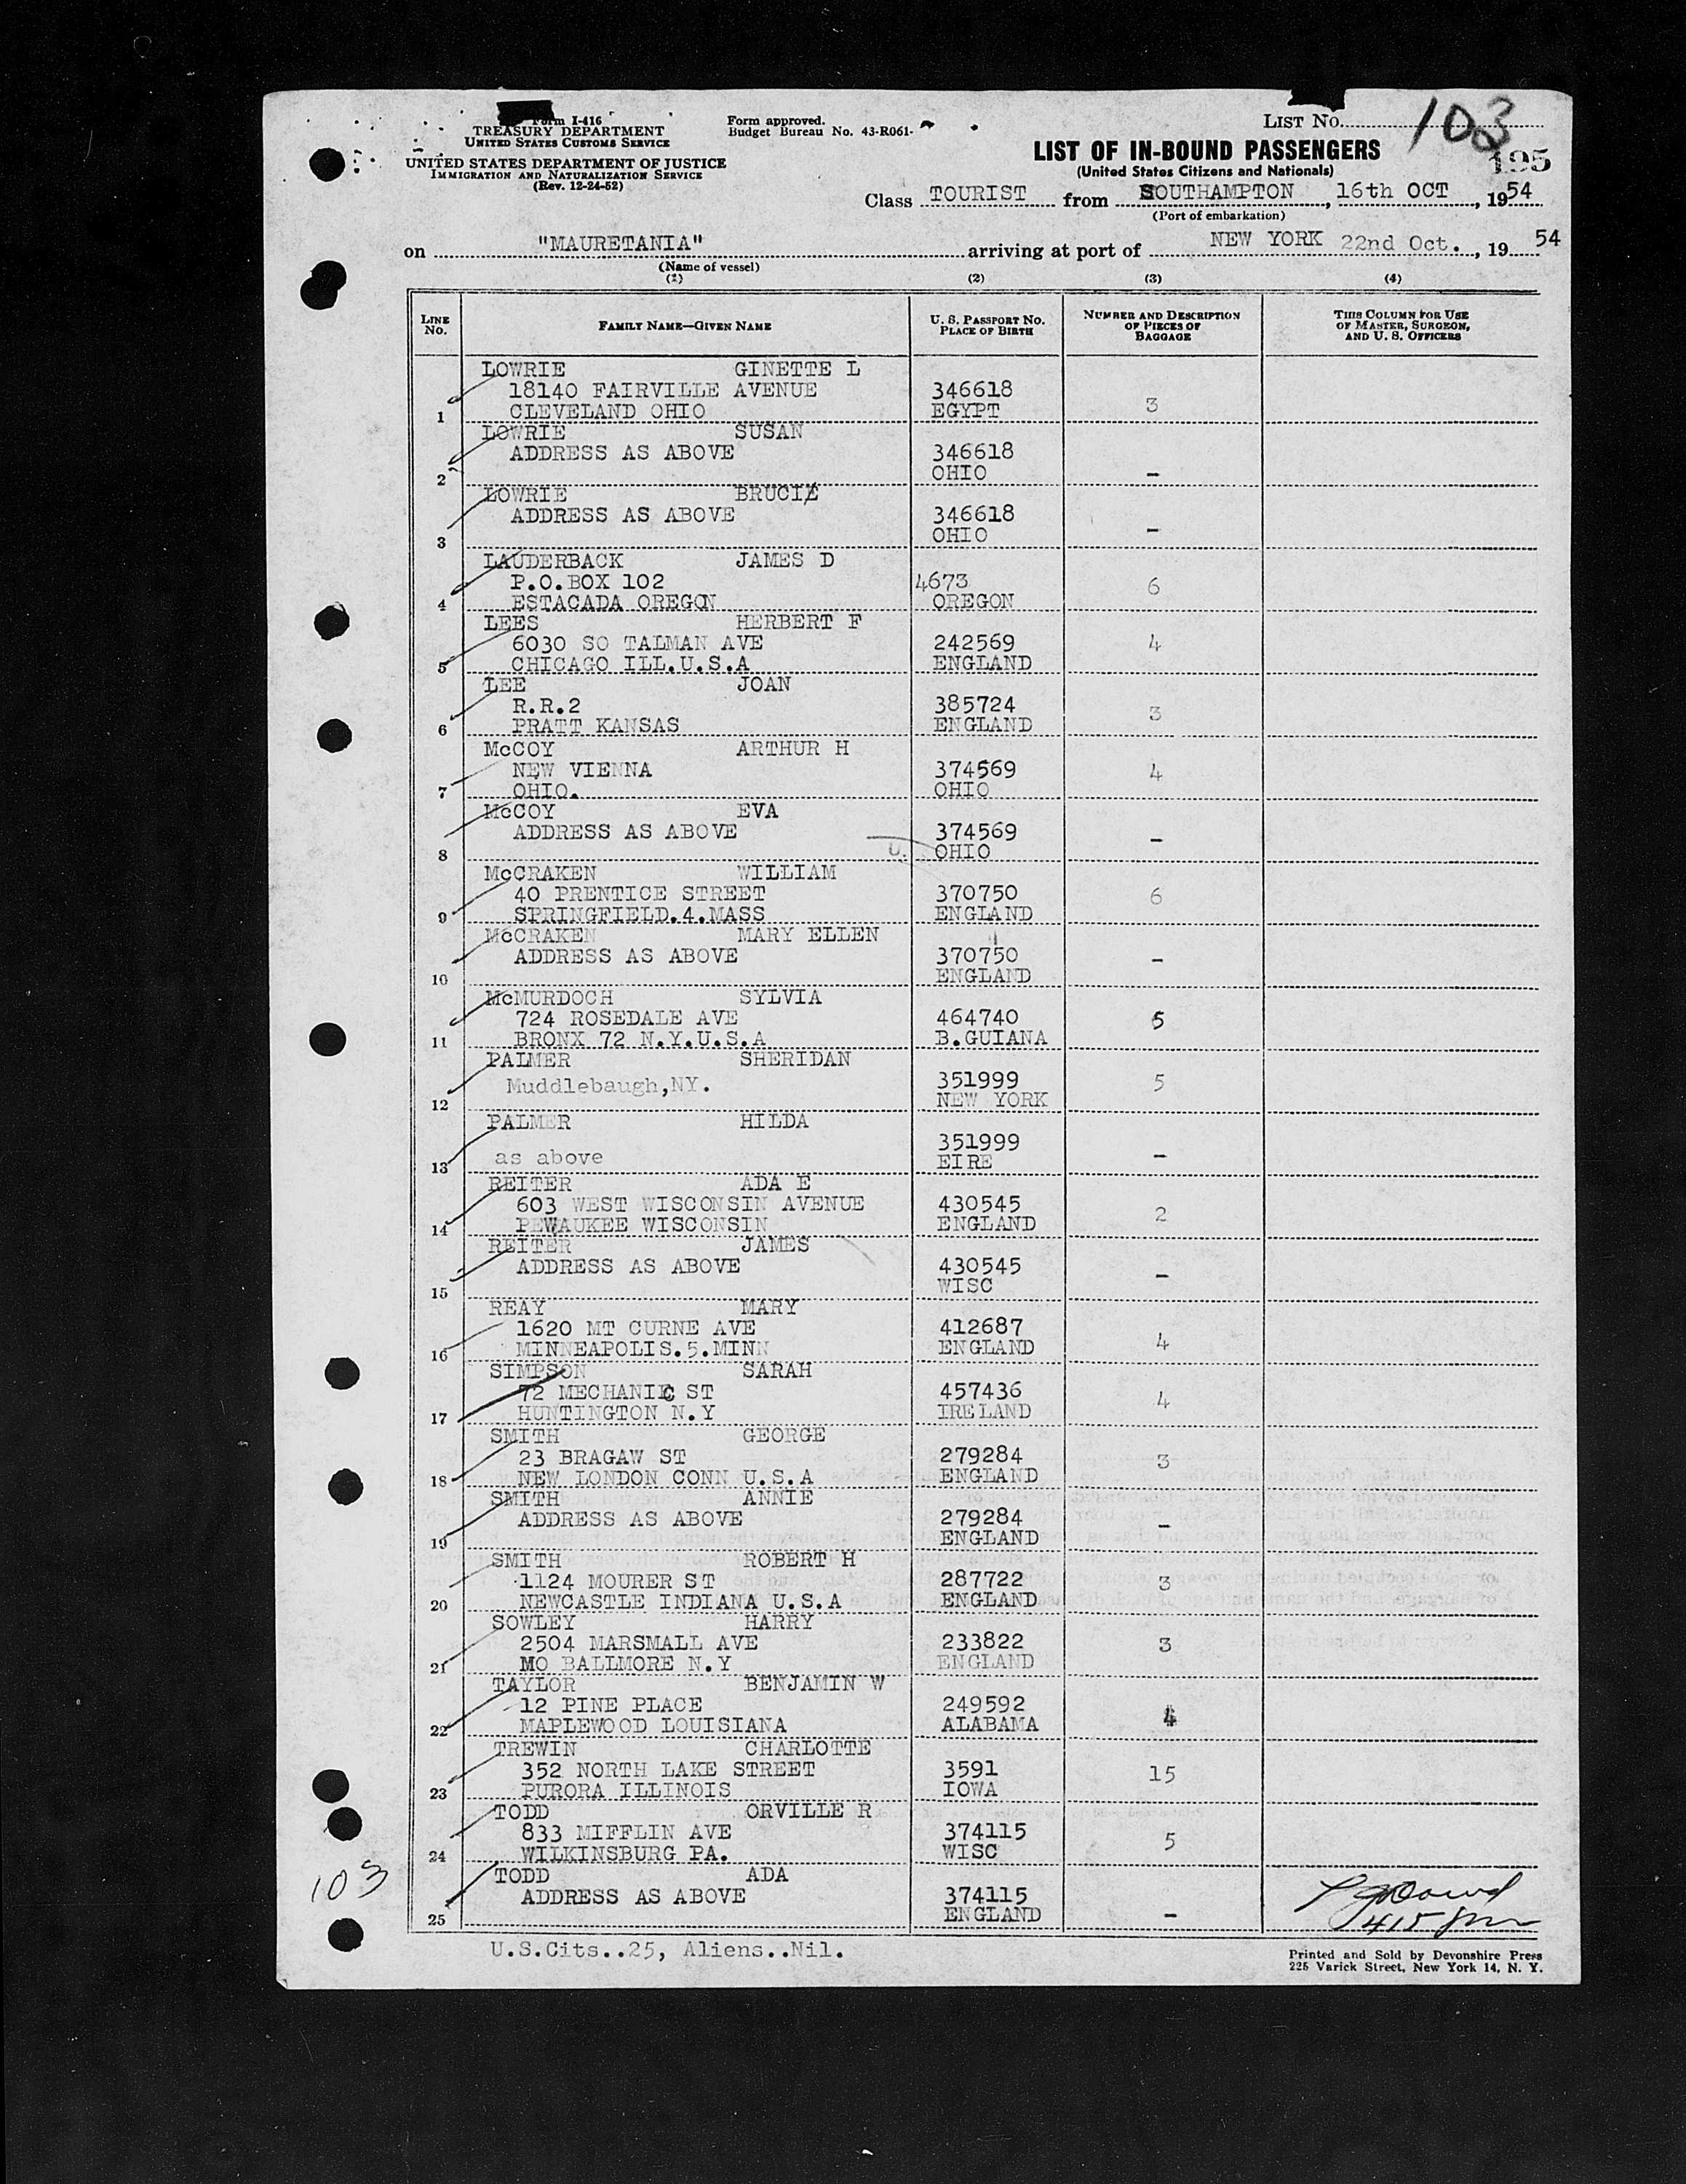 Form I-416
TREASURY DEPARTMENT
UNITED STATES CUSTOMS SERVICE
UNITED STATES DEPARTMENT OF JUSTICE
IMMIGRATION AND NATURALIZATION SERVICE
(Rev. 12-24-52)
Form approved.
Budget Bureau No. 43-R061-
LIST NO. 103
195
LIST OF IN-BOUND PASSENGERS
(United States Citizens and Nationals)
Class TOURIST from SOUTHAMPTON, 16th OCT, 1954
(Port of embarkation)
on "MAURETANIA" arriving at port of NEW YORK 22nd Oct., 19 54
(Name of vessel)
(1) (2) (3) (4)
LINE NO. FAMILY NAME—GIVEN NAME U. S. PASSPORT NO. PLACE OF BIRTH NUMBER AND DESCRIPTION OF PIECES OF BAGGAGE THIS COLUMN FOR USE OF MASTER, SURGEON, AND U. S. OFFICERS
LOWRIE GINETTE L
18140 FAIRVILLE AVENUE 346618 3
1 CLEVELAND OHIO EGYPT
LOWRIE SUSAN
ADDRESS AS ABOVE 346618
2 OHIO -
LOWRIE BRUCE
ADDRESS AS ABOVE 346618
3 OHIO -
LAUDERBACK JAMES D
P.O.BOX 102 4673 6
4 ESTACADA OREGON OREGON
LEES HERBERT F
6030 SO TALMAN AVE 242569 4
5 CHICAGO ILL.U.S.A ENGLAND
LEE JOAN
R.R.2 385724 3
6 PRATT KANSAS ENGLAND
McCOY ARTHUR H
NEW VIENNA 374569 4
7 OHIO. OHIO
McCOY EVA
ADDRESS AS ABOVE 374569 -
8 U. OHIO
McCRAKEN WILLIAM
40 PRENTICE STREET 370750 6
9 SPRINGFIELD.4.MASS ENGLAND
McCRAKEN MARY ELLEN
ADDRESS AS ABOVE 370750 -
10 ENGLAND
McMURDOCH SYLVIA
724 ROSEDALE AVE 464740 5
11 BRONX 72 N.Y.U.S.A B.GUIANA
PALMER SHERIDAN
Muddlebaugh,NY. 351999 5
12 NEW YORK
PALMER HILDA
351999
13 as above EIRE -
REITER ADA E
603 WEST WISCONSIN AVENUE 430545 2
14 PEWAUKEE WISCONSIN ENGLAND
REITER JAMES
ADDRESS AS ABOVE 430545 -
15 WISC
REAY MARY
1620 MT CURNE AVE 412687 4
16 MINNEAPOLIS.5.MINN ENGLAND
SIMPSON SARAH
72 MECHANIC ST 457436 4
17 HUNTINGTON N.Y IRELAND
SMITH GEORGE
23 BRAGAW ST 279284 3
18 NEW LONDON CONN U.S.A ENGLAND
SMITH ANNIE
ADDRESS AS ABOVE 279284 -
19 ENGLAND
SMITH ROBERT H
1124 MOURER ST 287722 3
20 NEWCASTLE INDIANA U.S.A ENGLAND
SOWLEY HARRY
2504 MARSMALL AVE 233822 3
21 MO BALLMORE N.Y ENGLAND
TAYLOR BENJAMIN W
12 PINE PLACE 249592 4
22 MAPLEWOOD LOUISIANA ALABAMA
TREWIN CHARLOTTE
352 NORTH LAKE STREET 3591 15
23 PURORA ILLINOIS IOWA
TODD ORVILLE R
833 MIFFLIN AVE 374115 5
24 WILKINSBURG PA. WISC
TODD ADA
ADDRESS AS ABOVE 374115
25 ENGLAND -
103
U.S.Cits..25, Aliens..Nil.
Printed and Sold by Devonshire Press
225 Varick Street, New York 14, N. Y.